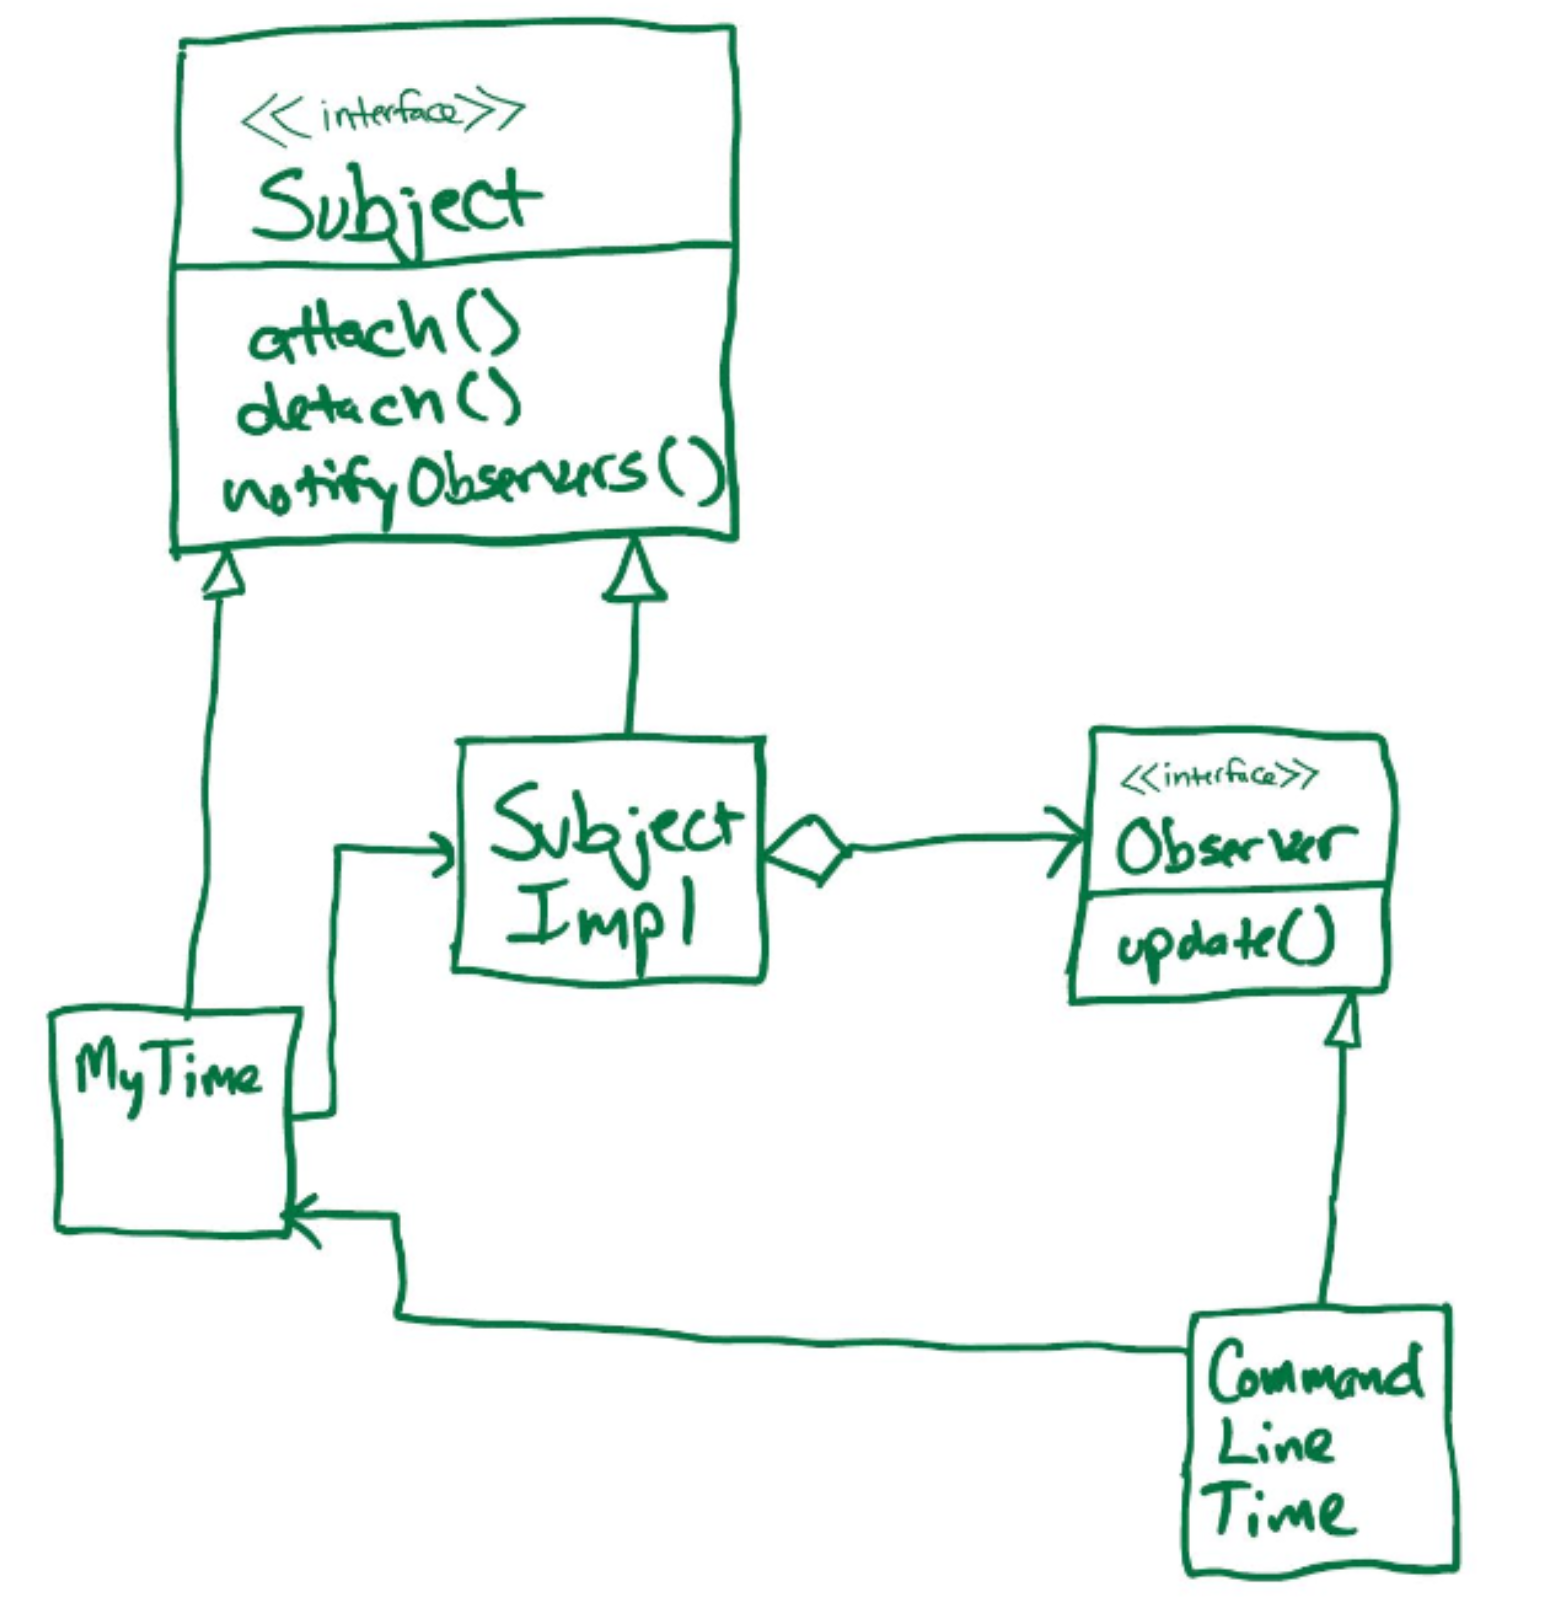 <<interface>>
Subject
attach()
detach()
notifyObservers()
Subject
Impl
<<interface>>
Observer
update()
MyTime
Command
Line
Time